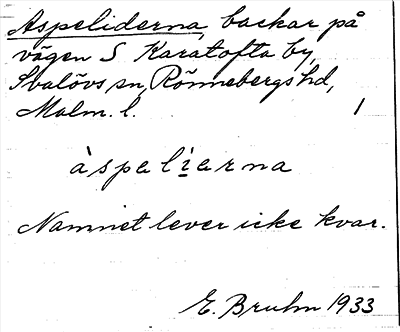 Aspeliderna, backar på
vägen S Karatofta by,
Svalövs sn, Rönnebergs hd,
Malm. l. 1
àspelìerna
Namnet lever icke kvar.
E. Bruhm 1933